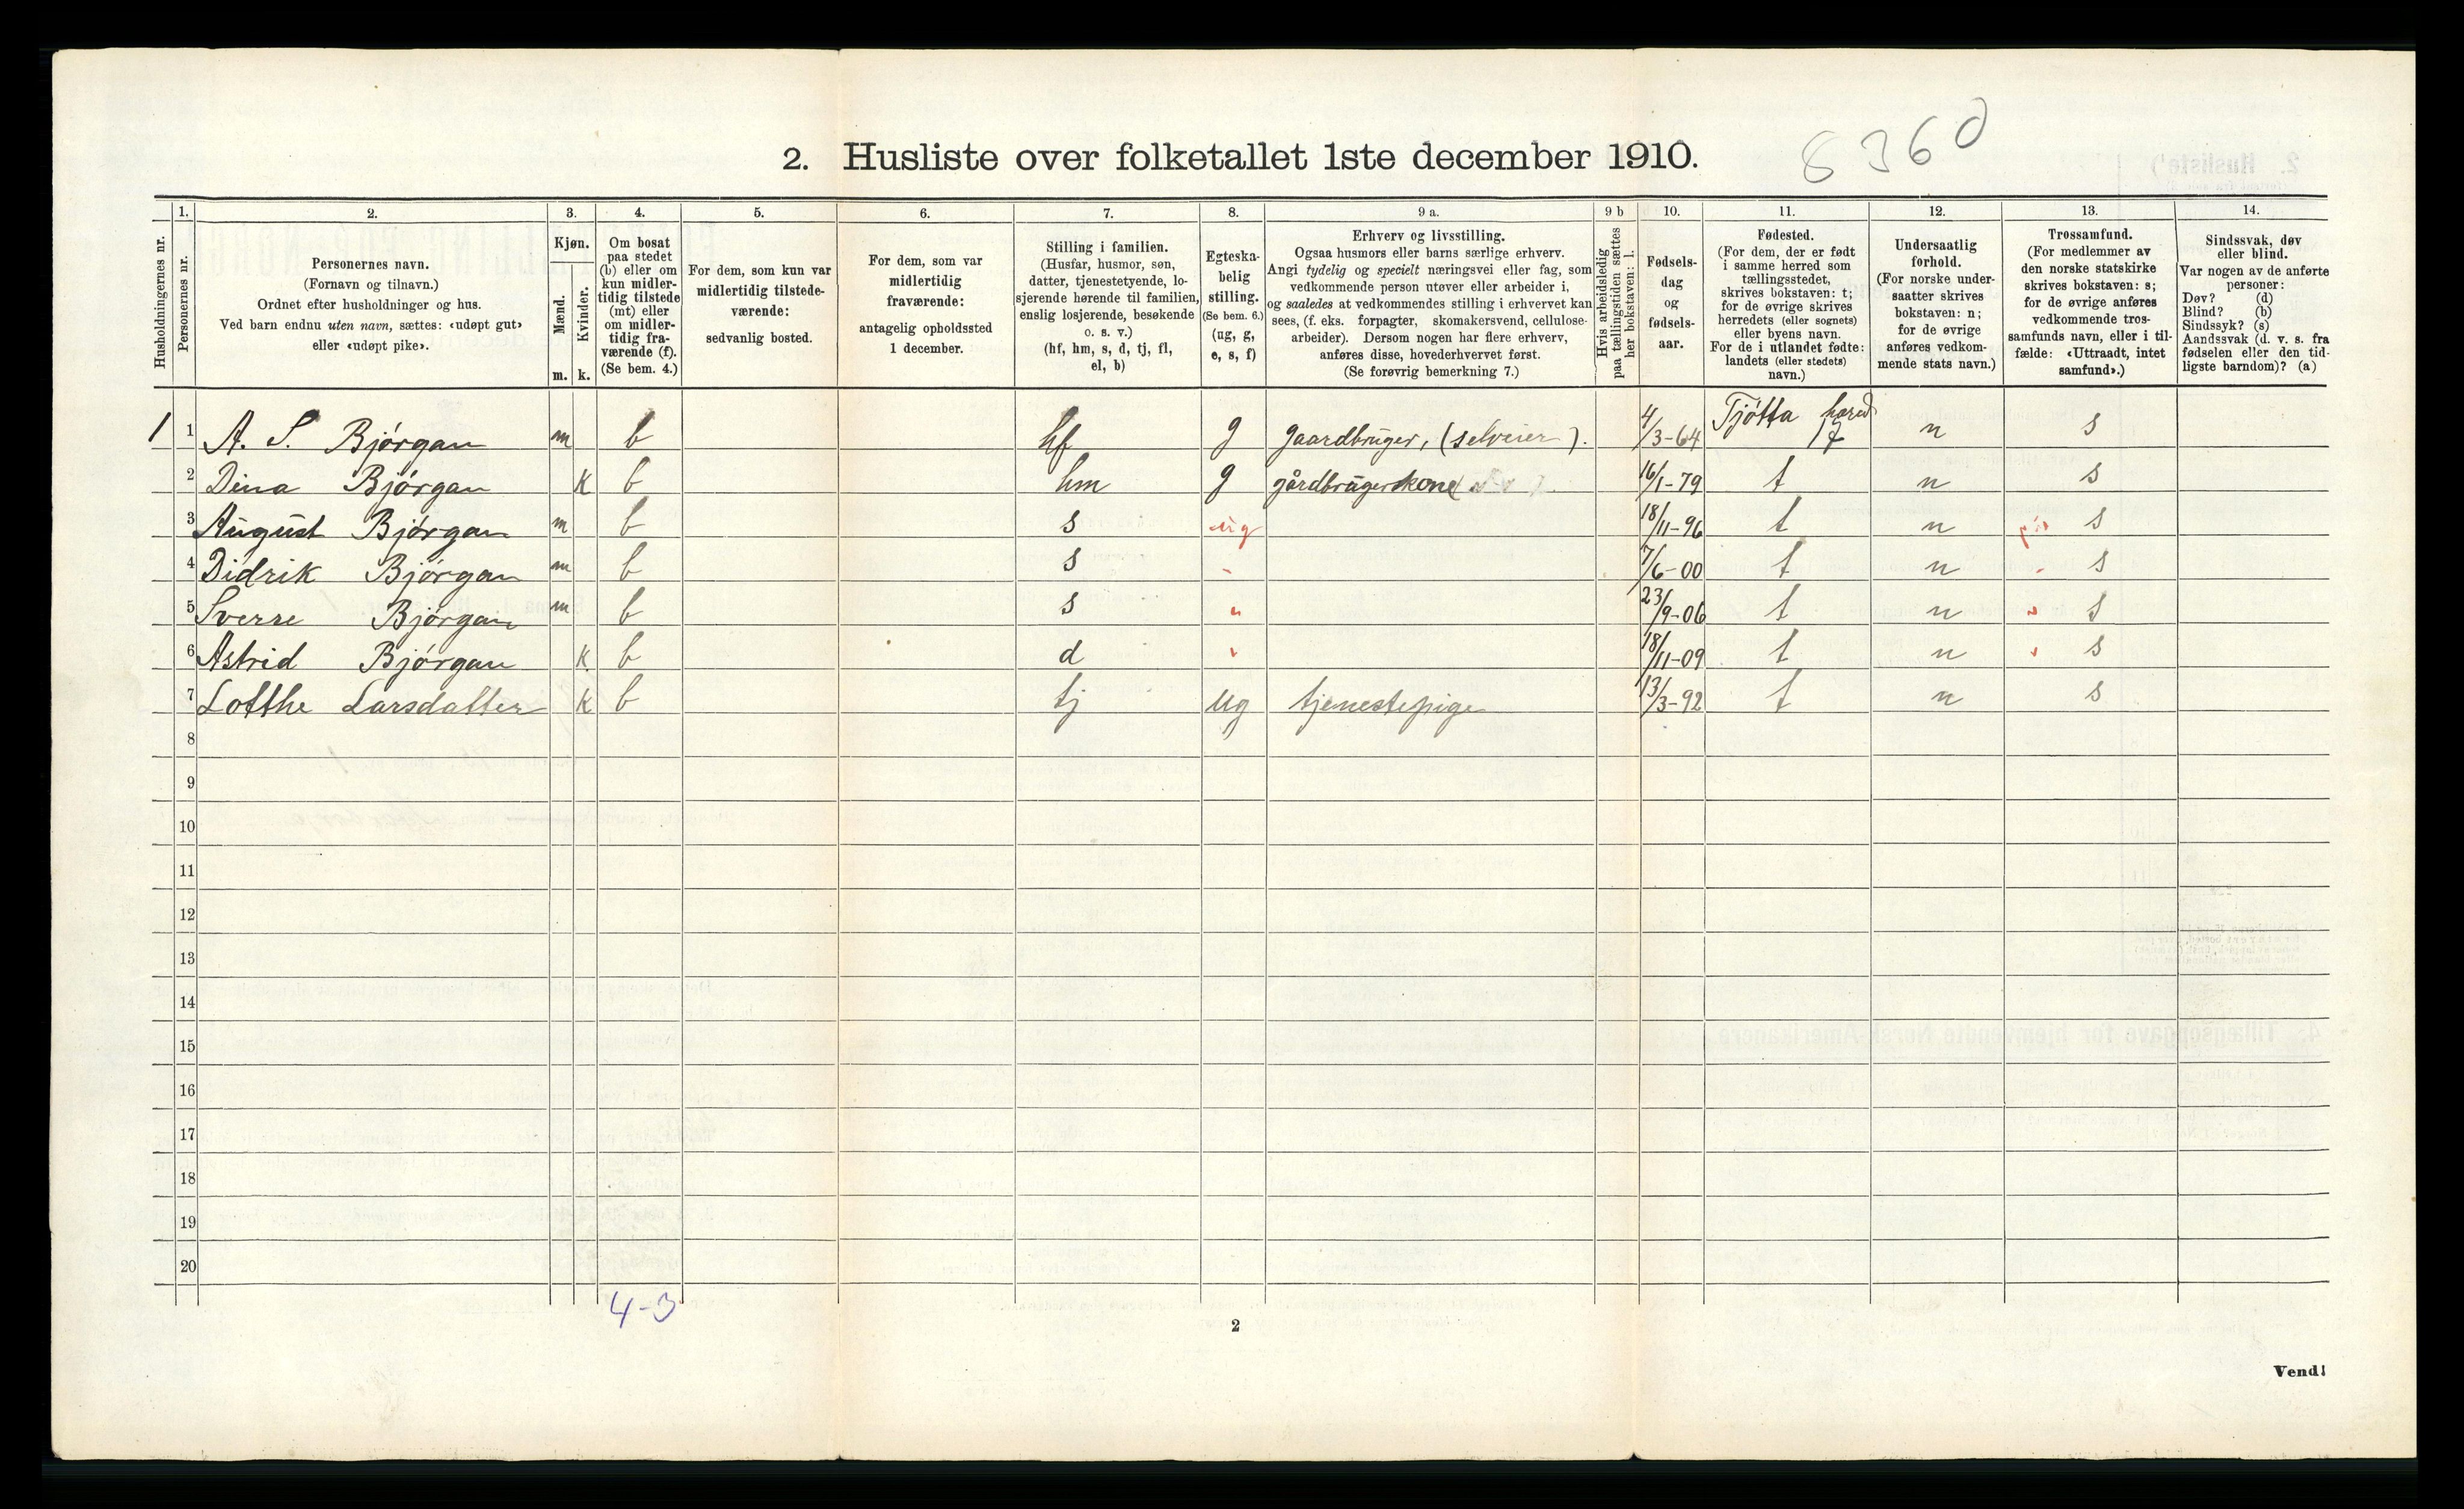 2. Husliste over folketallet 1ste december 1910.
8360
Husholdningernes nr.
1.
Personernes nr.
2.
Personernes navn.
(Fornavn og tilnavn.)
Ordnet efter husholdninger og hus.
Ved barn endnu uten navn, sættes: «udøpt gut»
eller «udøpt pike».
3.
Kjøn.
Mænd.
Kvinder.
m. k.
4.
Om bosat
paa stedet
(b) eller om
kun midler-
tidig tilstede
(mt) eller
om midler-
tidig fra-
værende (f).
(Se bem. 4.)
5.
For dem, som kun var
midlertidig tilstede-
værende:
sedvanlig bosted.
6.
For dem, som var
midlertidig
fraværende:
antagelig opholdssted
1 december.
7.
Stilling i familien.
(Husfar, husmor, søn,
datter, tjenestetyende, lo-
sjerende hørende til familien,
enslig losjerende, besøkende
o. s. v.)
(hf, hm, s, d, tj, fl,
el, b)
8.
Egteska-
belig
stilling.
(Se bem. 6.)
(ug, g,
e, s, f)
9 a.
Erhverv og livsstilling.
Ogsaa husmors eller barns særlige erhverv.
Angi tydelig og specielt næringsvei eller fag, som
vedkommende person utøver eller arbeider i,
og saaledes at vedkommendes stilling i erhvervet kan
sees, (f. eks. forpagter, skomakersvend, cellulose-
arbeider). Dersom nogen har flere erhverv,
anføres disse, hovederhvervet først.
(Se forøvrig bemerkning 7.)
9 b
Hvis arbeidsledig
paa tællingstiden sættes
her bokstaven: l.
10.
Fødsels-
dag
og
fødsels-
aar.
11.
Fødested.
(For dem, der er født
i samme herred som
tællingsstedet,
skrives bokstaven: t;
for de øvrige skrives
herredets (eller sognets)
eller byens navn.
For de i utlandet fødte:
landets (eller stedets)
navn.)
12.
Undersaatlig
forhold.
(For norske under-
saatter skrives
bokstaven: n;
for de øvrige
anføres vedkom-
mende stats navn.)
13.
Trossamfund.
(For medlemmer av
den norske statskirke
skrives bokstaven: s;
for de øvrige anføres
vedkommende tros-
samfunds navn, eller i til-
fælde: «Uttraadt, intet
samfund».)
14.
Sindssvak, døv
eller blind.
Var nogen av de anførte
personer:
Døv? (d)
Blind? (b)
Sindssyk? (s)
Aandssvak (d. v. s. fra
fødselen eller den tid-
ligste barndom)? (a)
1 1 A. S. Bjørgan m b hf g gaardbruger, (selveier). 4/3-64 Tjøtta herred 17 n s
2 Dina Bjørgan k b hm g gårdbrugerkone 16/1-79 t n s
3 August Bjørgan m b s ug 18/11-96 t n s
4 Didrik Bjørgan m b s - 7/6-00 t n s
5 Sverre Bjørgan m b s " 23/9-06 t n " s
6 Astrid Bjørgan k b d " 18/11-09 t n " s
7 Lotthe Larsdatter k b tj ug tjenestepige 13/3-92 t n s
8
9
10
11
12
13
14
15
16
17
18
19
20
4-3
2
Vend!